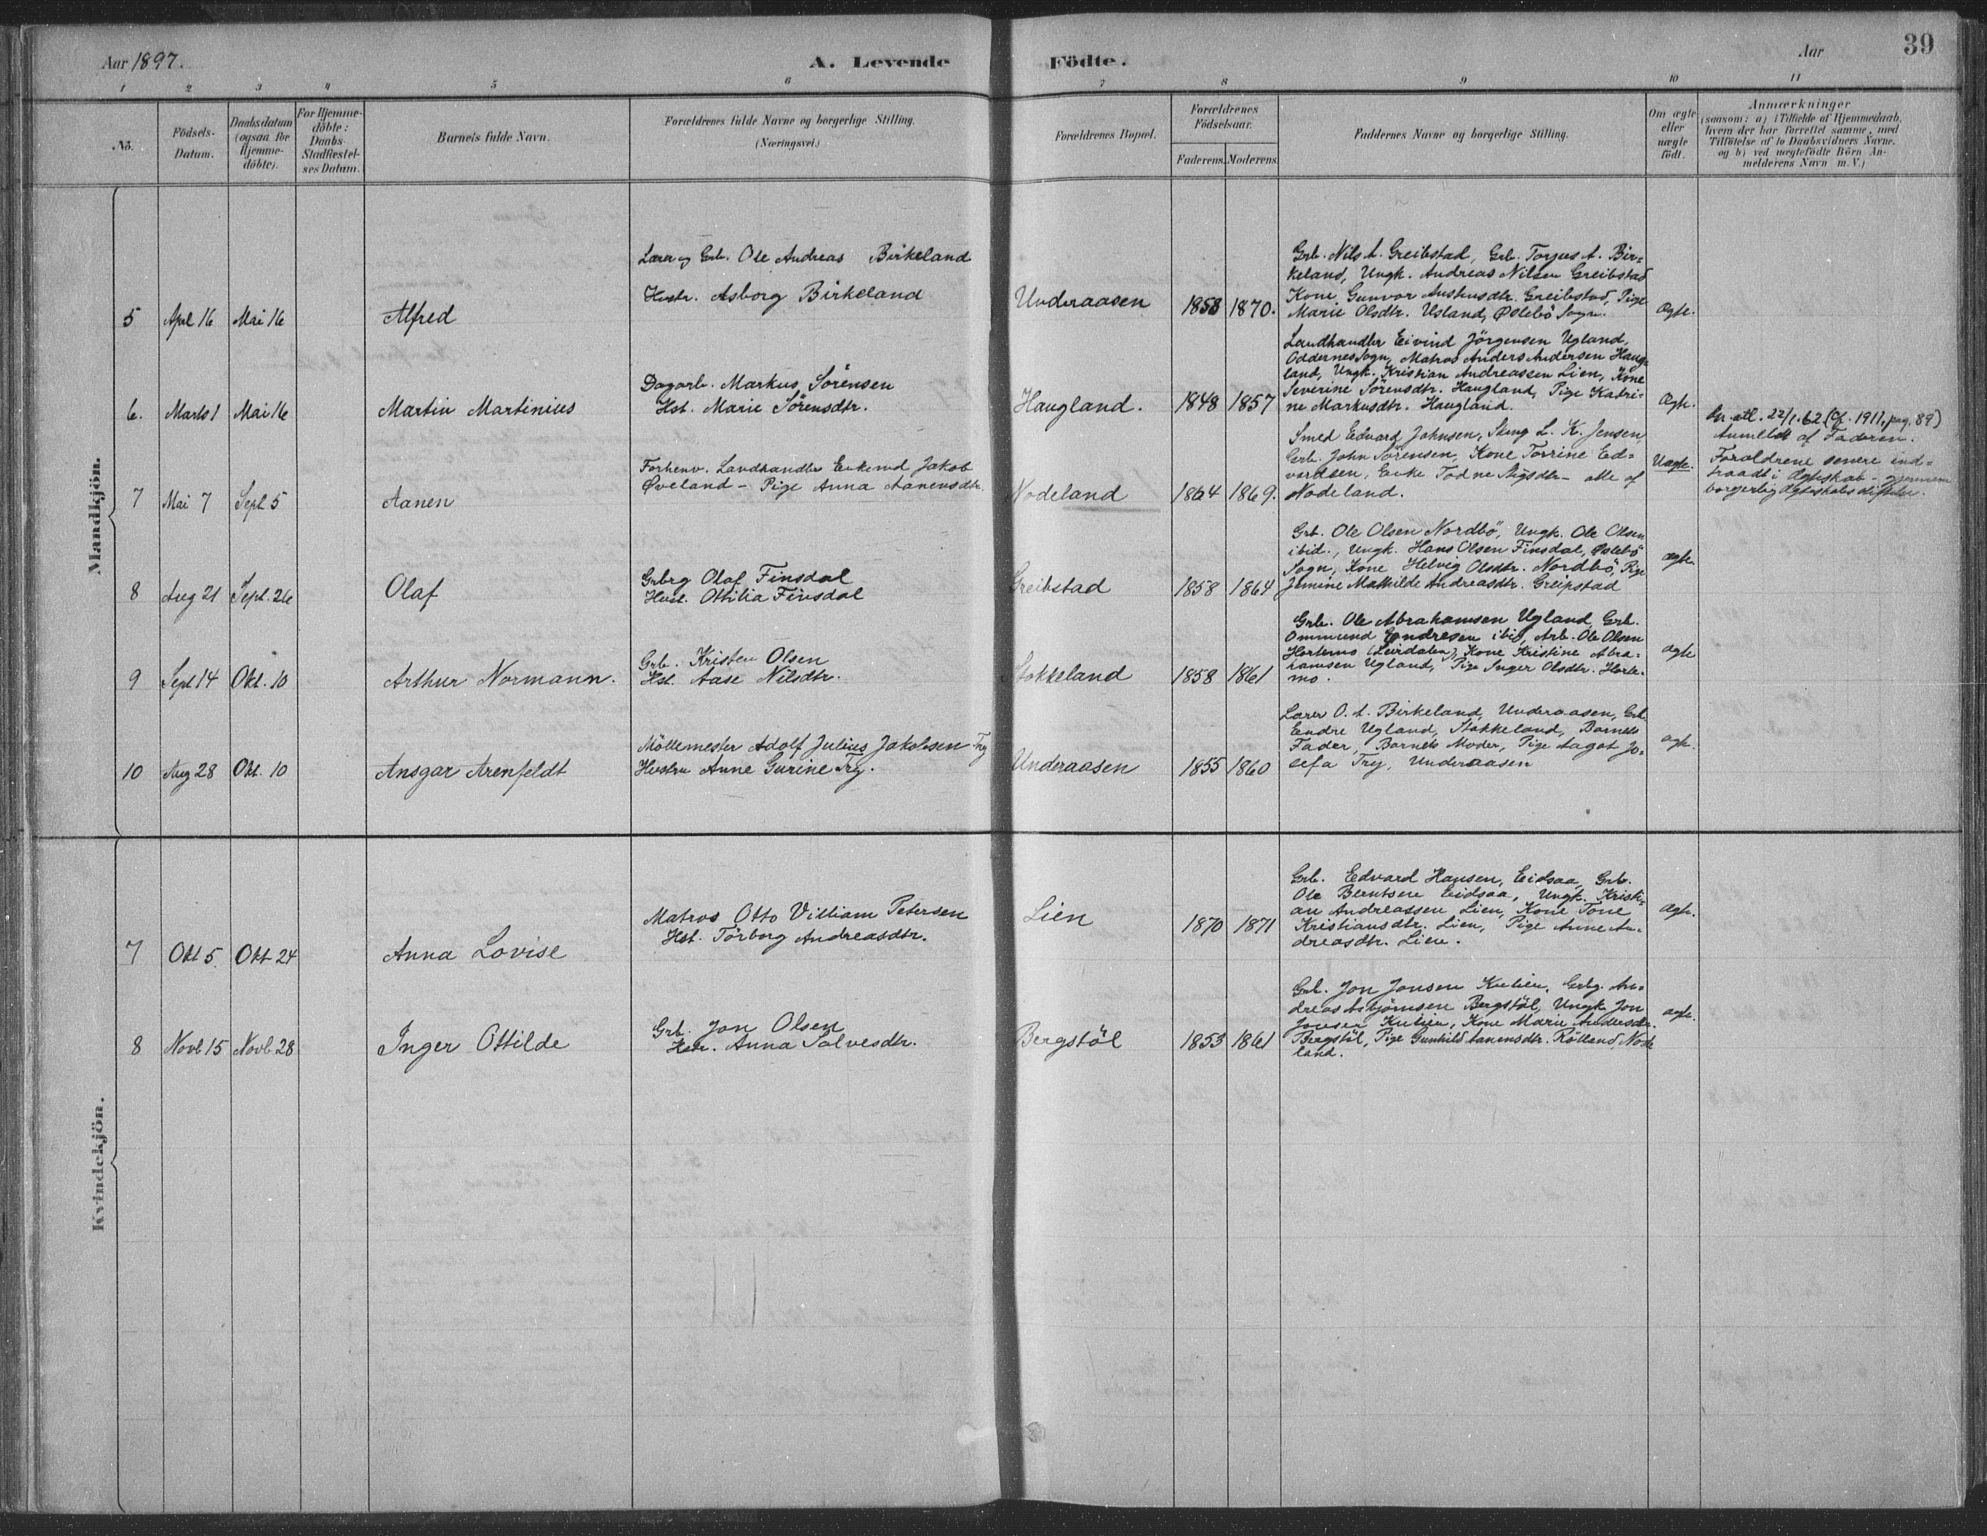 Aar 1897.
A. Levende Födte.
Aar
39
1 2 3 4 5 6 7 8 9 10 11
No.
Födsels-Datum.
Daabsdatum (ogsaa for Hjemme-döbte).
For Hjemme-döbte: Daabs-Stadfæstel-ses Datum.
Barnets fulde Navn.
Forældrenes fulde Navne og borgerlige Stilling. (Næringsvei.)
Forældrenes Bopæl.
Forældrenes Födselsaar.
Faderens. Moderens.
Faddernes Navne og borgerlige Stilling.
Om ægte eller uægte födt.
Anmærkninger
(saasom: a) i Tilfælde af Hjemmedaab,
hvem der har forrettet samme, med
Tilföielse af to Daabsvidners Navne,
og b) ved uægtefödte Börn An-
melderens Navn m. V.)
Mandkjön.
5 Apl 16 Mai 16 Alfred
Lærer og Grb. Ole Andreas Birkeland
Hustr. Asborg Birkeland
Underaasen 1858 1870.
Grb. Nils A. Greibstad, Grb. Torjus A. Bir-
keland, Ungk. Andreas Nilsen Greibstad
Kone Gunvor Aushusdtr. Greibstad, Pige
Marie Olsdtr. Usland, Øslebö Sogn.
Ægte.
6. Marts 1 Mai 16 Martin Martinius
Dagarb. Markus Sörensen
Hst. Marie Sörensdtr.
Haugland. 1848 1857
Landhandler Eivind Jörgensen Ugland,
Oddernes Sogn, Matros Anders Andersen Haug-
land, Ungk. Kristian Andreassen Lien, Kone
Severine Sörensdtr. Haugland, Pige Katri-
ne Markusdtr. Haugland.
Ægte.
7 Mai 7 Sept 5 Aanen
Forhenv. Landhandler Enkemd Jakob
Øveland – Pige Anna Aanensdtr.
Nodeland 1864 1869.
Smed Edvard Johnsen, L. K. Jensen
Grb. John Sörensen, Kone Torrine Ed-
vardsen, Enke Todne Stigsdtr – alle af
Nodeland.
Uægte.
att. 22/1.62 (Cf. 1911, pag. 89)
Anmeldt af Faderen.
Forældrene senere ind-
traadt i Ægteskab – gjennem
borgerlig Ægteskabsstiftelse.
8 Aug 21 Sept. 26 Olaf
Grbrg Olaf Finsdal
Hust. Ottilia Finsdal
Greibstad 1858 1864
Grb. Ole Olsen Nordbö, Ungk. Ole Olsen
ibid., Ungk. Hans Olsen Finsdal, Øslebö
Sogn, Kone Helvig Olsdtr. Nordbö, Pige
Jemine Mathilde Andreasdtr. Greipstad
Ægte
9 Sept 14 Okt. 10 Arthur Normann.
Grb. Kristen Olsen
Hst. Aase Nilsdtr.
Stokkeland 1858 1861
Grb. Ole Abrahamsen Ugland, Grb.
Ommund Endresen ibid, Arb. Ole Olsen
Hortemo (Leirdalen), Kone Kristine Abra-
hamsen Ugland, Pige Inger Olsdtr. Horte-
mo.
Ægte
10 Aug 28 Okt. 10 Ansgar Arenfeldt
Möllemester Adolf Julius Jakobsen Try
Hustru Anne Gurine Try.
Underaasen 1855 1860
Lærer O. A. Birkeland, Underaasen, Grb.
Endre Ugland, Stokkeland, Barnets
Fader, Barnets Moder, Pige Aagot Jo-
sefa Try, Underaasen
Ægte.
Kvindekjön.
7 Okt 5 Okt 24 Anna Lovise
Matros Otto Villiam Petersen
Hst. Torborg Andreasdtr.
Lien 1870 1871
Grb. Edvard Hansen, Eidsaa, Grb.
Ole Berntsen Eidsaa, Ungk. Kristi-
an Andreassen Lien, Kone Tone
Kristiansdtr. Lien, Pige Anne An-
dreasdtr. Lien.
Ægte.
8 Novb 15 Novb 28 Inger Ottilde
Grb. Jon Olsen
Hstr. Anna Salvesdtr.
Bergstöl 1853 1861
Grb. Jon Jonsen Kulien, Grbg. An-
dreas Asbjörnsen Bergstöl, Ungk. Jon
Jonsen Kulien, Kone Marie Andersdtr.
Bergstöl, Pige Gunhild Aanensdtr. Rölland, Node
land.
Ægte.